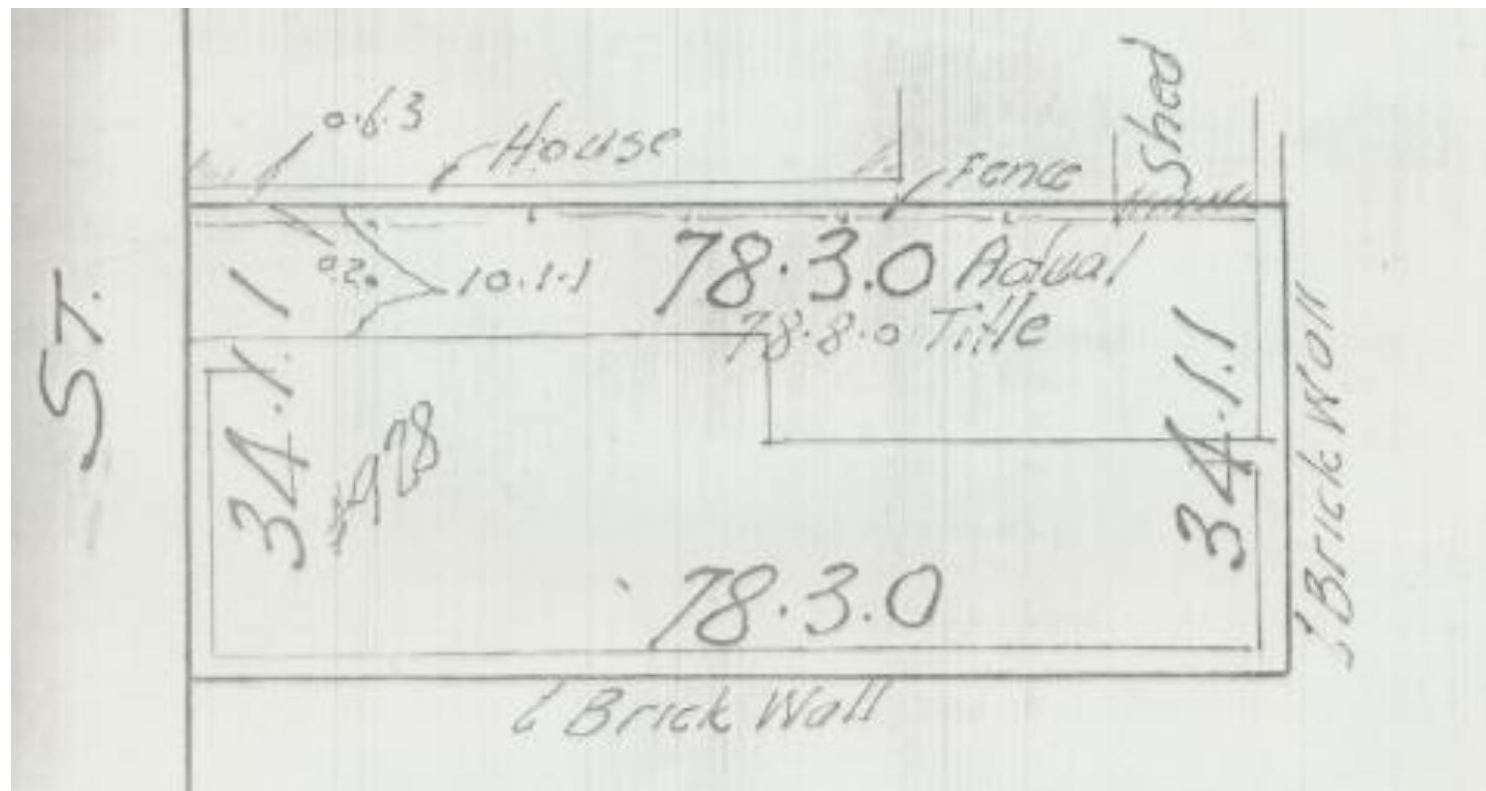 0.6.3
House
Shed
Fence
0.2.0
10.1.1
78.3.0 Actual
78.8.0 Title
ST.
34.1.1
#928
34.1.1
Brick Wall
78.3.0
Brick Wall